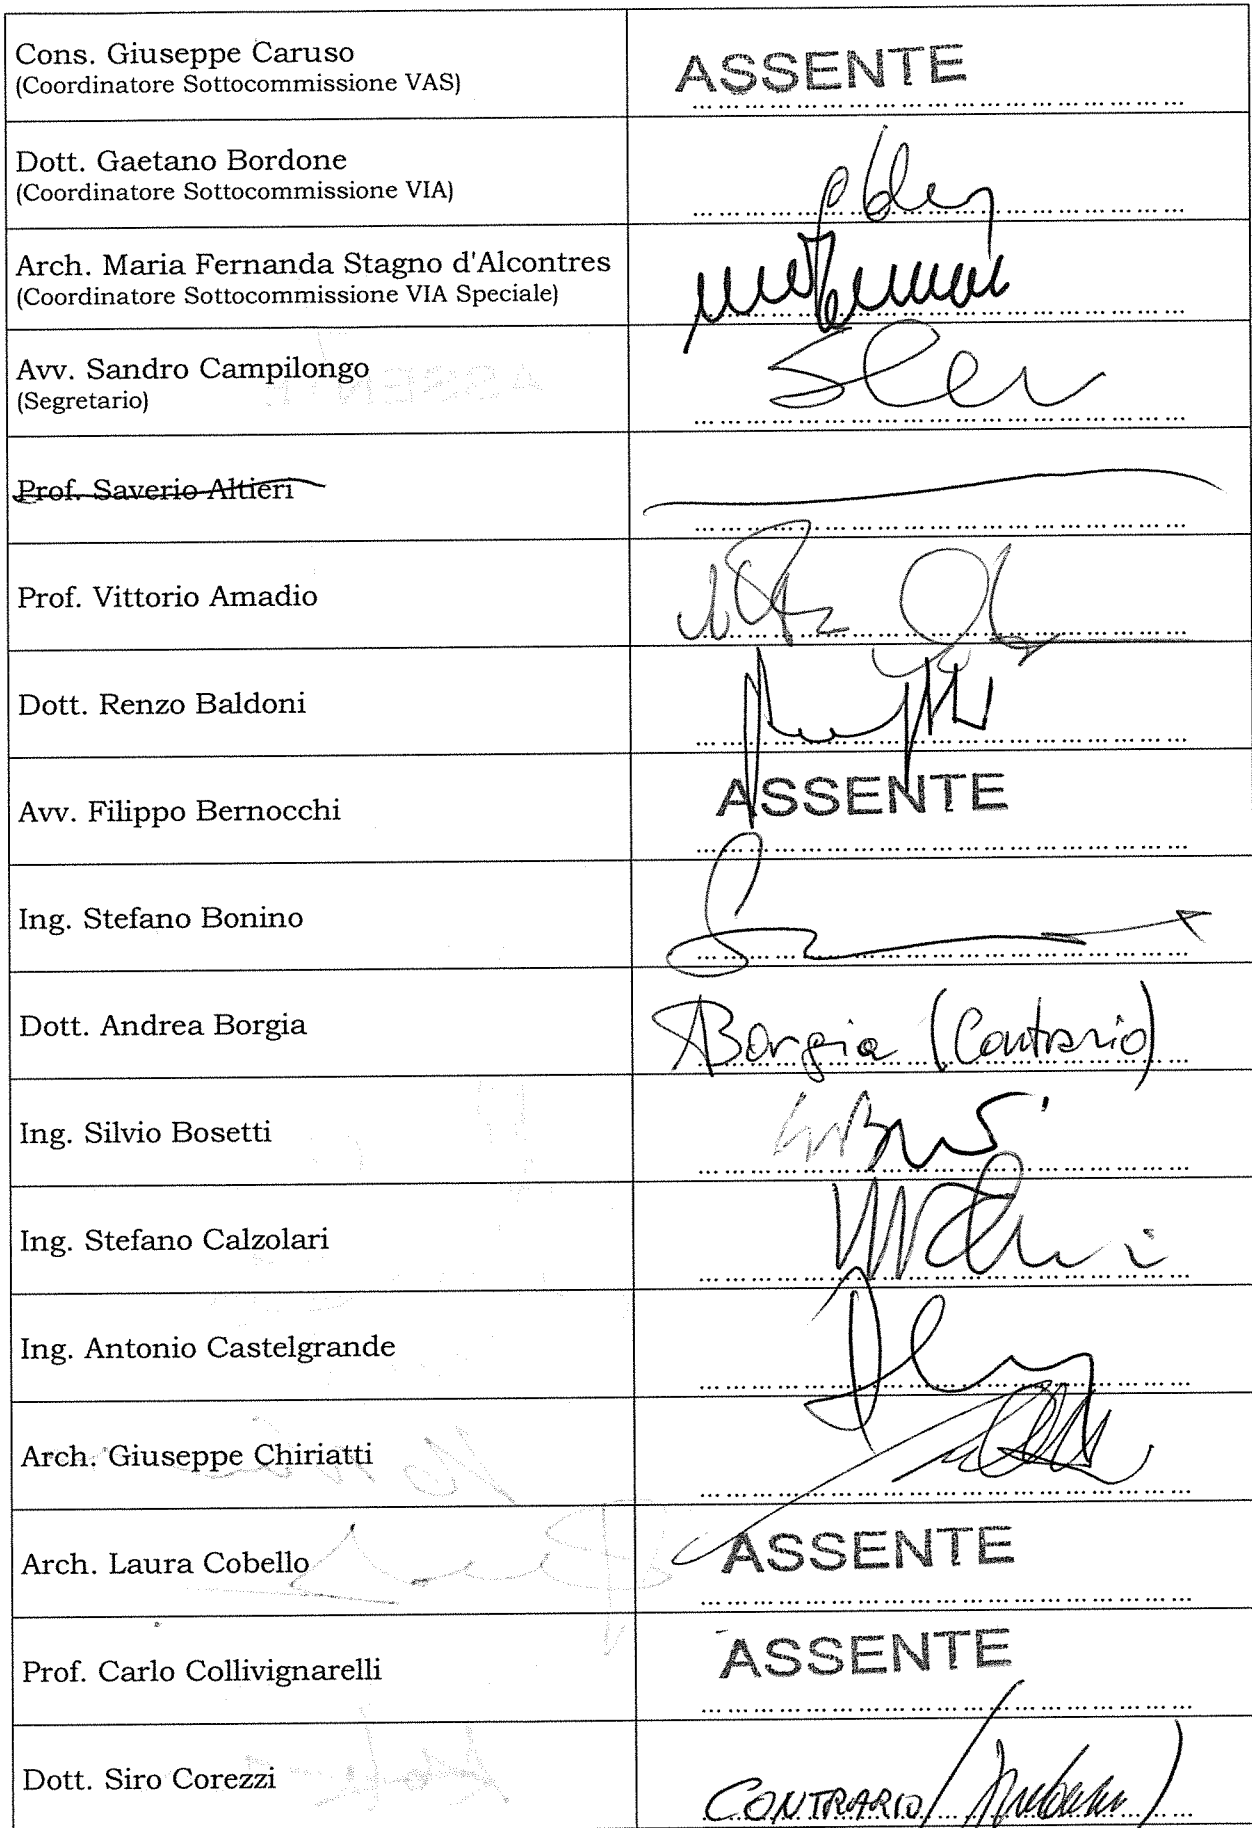 Cons. Giuseppe Caruso
(Coordinatore Sottocommissione VAS)
ASSENTE
Dott. Gaetano Bordone
(Coordinatore Sottocommissione VIA)
Arch. Maria Fernanda Stagno d'Alcontres
(Coordinatore Sottocommissione VIA Speciale)
Avv. Sandro Campilongo
(Segretario)
Prof. Saverio Altieri
Prof. Vittorio Amadio
Dott. Renzo Baldoni
Avv. Filippo Bernocchi
ASSENTE
Ing. Stefano Bonino
Dott. Andrea Borgia
ABorgia (Contrario)
Ing. Silvio Bosetti
Ing. Stefano Calzolari
Ing. Antonio Castelgrande
Arch. Giuseppe Chiriatti
Arch. Laura Cobello
ASSENTE
Prof. Carlo Collivignarelli
ASSENTE
Dott. Siro Corezzi
CONTRARIO